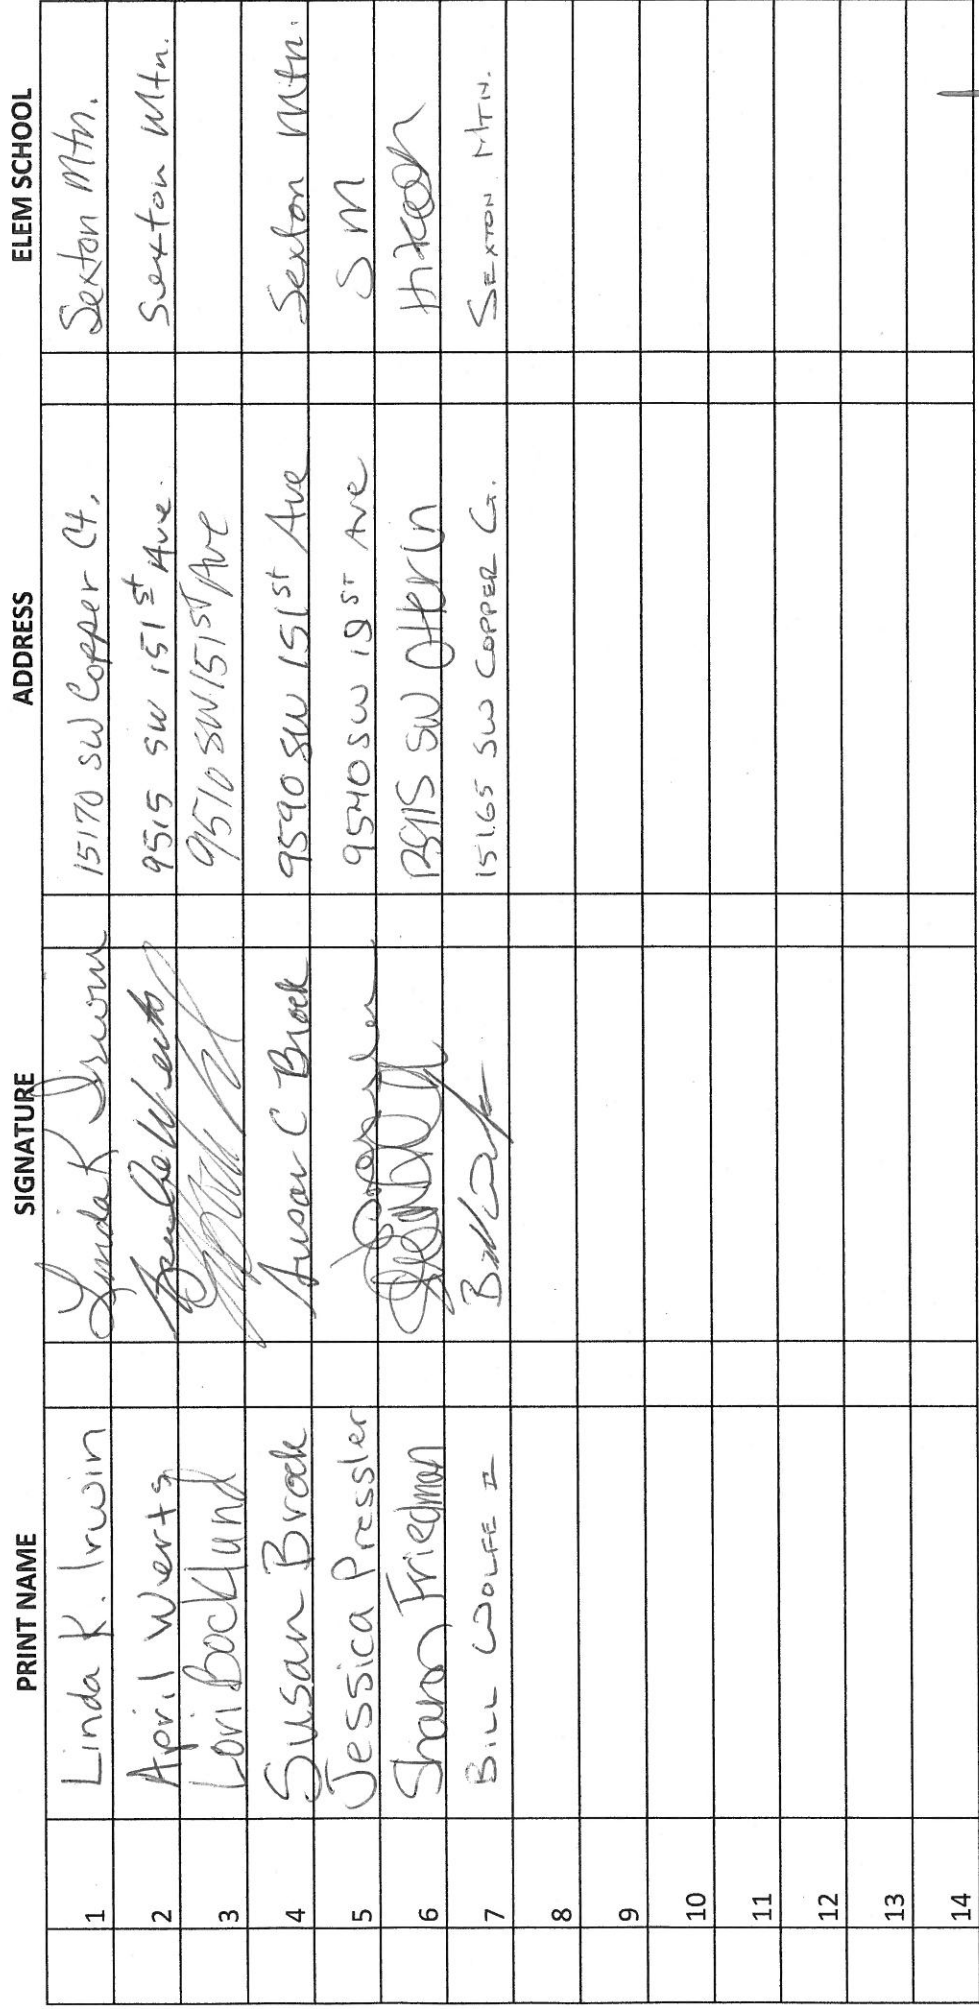 PRINT NAME SIGNATURE ADDRESS ELEM SCHOOL
1 Linda K. Irwin Linda K Irwin 15170 SW Copper Ct. Sexton Mtn.
2 April Werts 9515 SW 151st Ave. Sexton Mtn.
3 Lori Bocklund 9510 SW 151ST Ave
4 Susan Brock Susan C Brock 9590 SW 151st Ave Sexton Mtn.
5 Jessica Pressler 9540 SW ST Ave S M
6 Sharon Friedman SW Otter Ln Hiteon
7 BILL WOLFE II 15165 SW COPPER CT. SEXTON MTN.
8
9
10
11
12
13
14